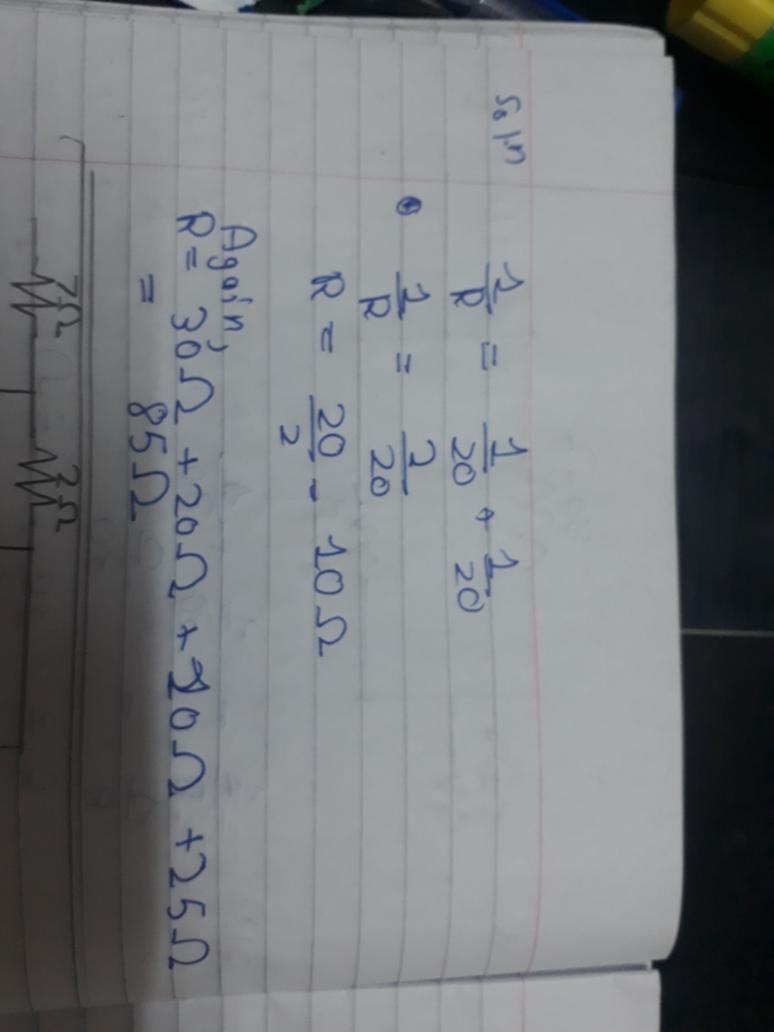 Soln
1/R = 1/20 + 1/20
1/R = 2/20
R = 20/2 = 10Ω
Again,
R = 30Ω + 20Ω + 10Ω + 25Ω
= 85Ω
7Ω 2Ω